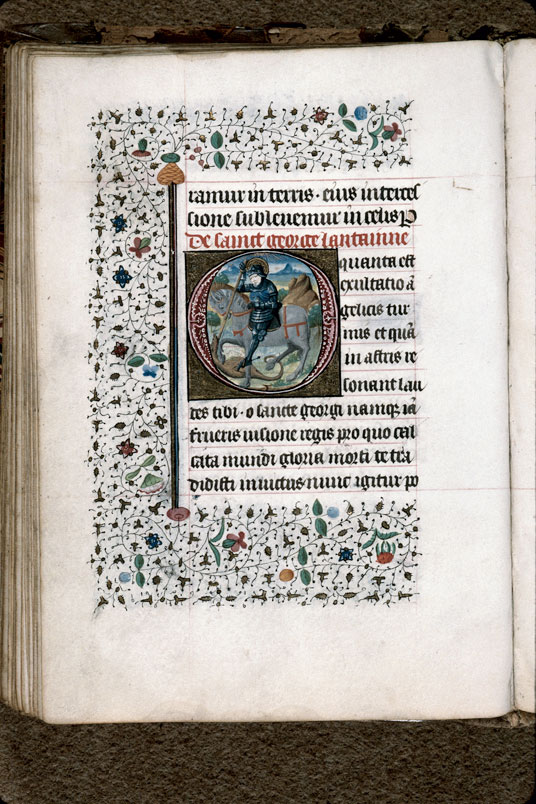 ramur in terris · eius interces
sione subleuemur in celis P
De sainct george lantainne
O quanta est
exultatio a
gelicis tur
mis et qua
in astris re
sonant lau
des tibi · o sancte georgi namq; ia
frueris uisione regis pro quo cal
cata mundi gloria morti te tra
didisti inuictus nunc igitur po